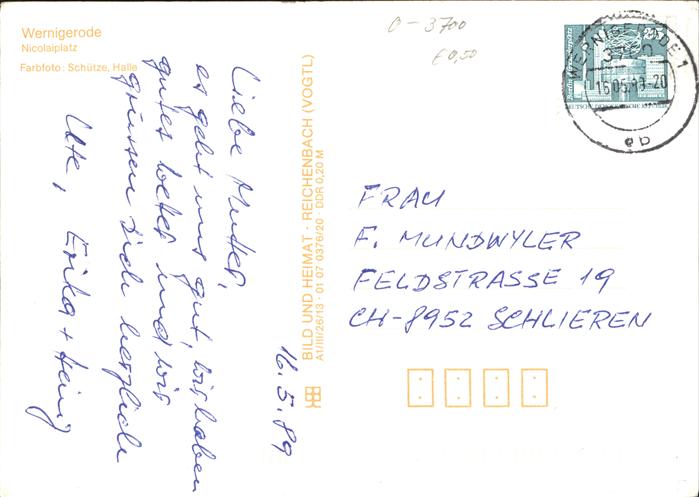 Wernigerode
Nicolaiplatz
Farbfoto: Schütze, Halle
0-3700
€0,50
16.5.89
Liebe Mutter,
es geht uns gut, wir haben
gutes Wetter und wir
grüssen Dich herzlich
Ute, Erika + Heinz
BILD UND HEIMAT · REICHENBACH (VOGTL)
A1/III/26/13 · 01 07 0376/20 · DDR 0,20 M
25
DEUTSCHE DEMOKRATISCHE REPUBLIK
WERNIGERODE 1
3700
16.05.89-20
eb
FRAU
F. MUNDWYLER
FELDSTRASSE 19
CH-8952 SCHLIEREN